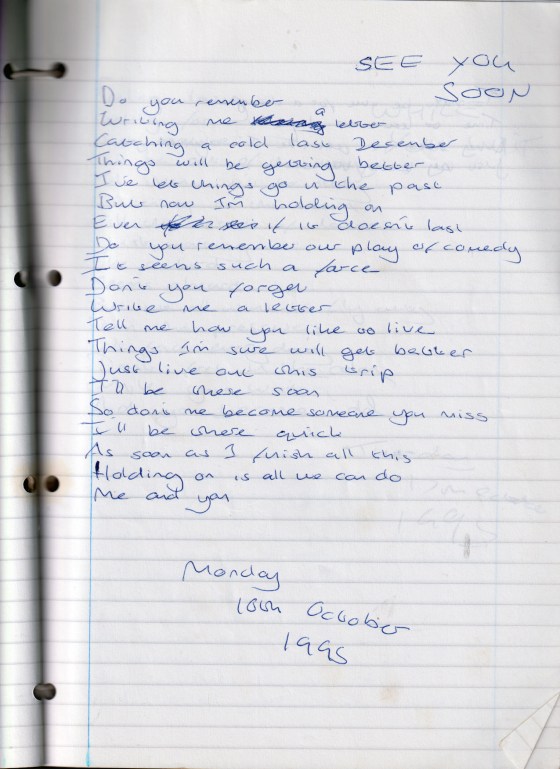 SEE YOU
SOON
Do you remember
Writing me a letter
Catching a cold last December
Things will be getting better
I've let things go in the past
But now I'm holding on
Even if it doesn't last
Do you remember our play of comedy
It seems such a farce
Don't you forget
Write me a letter
Tell me how you like to live
Things I'm sure will get better
Just live out this trip
I'll be there soon
So don't me become someone you miss
I'll be there quick
As soon as I finish all this
Holding on is all we can do
Me and you
Monday
16th October
1995